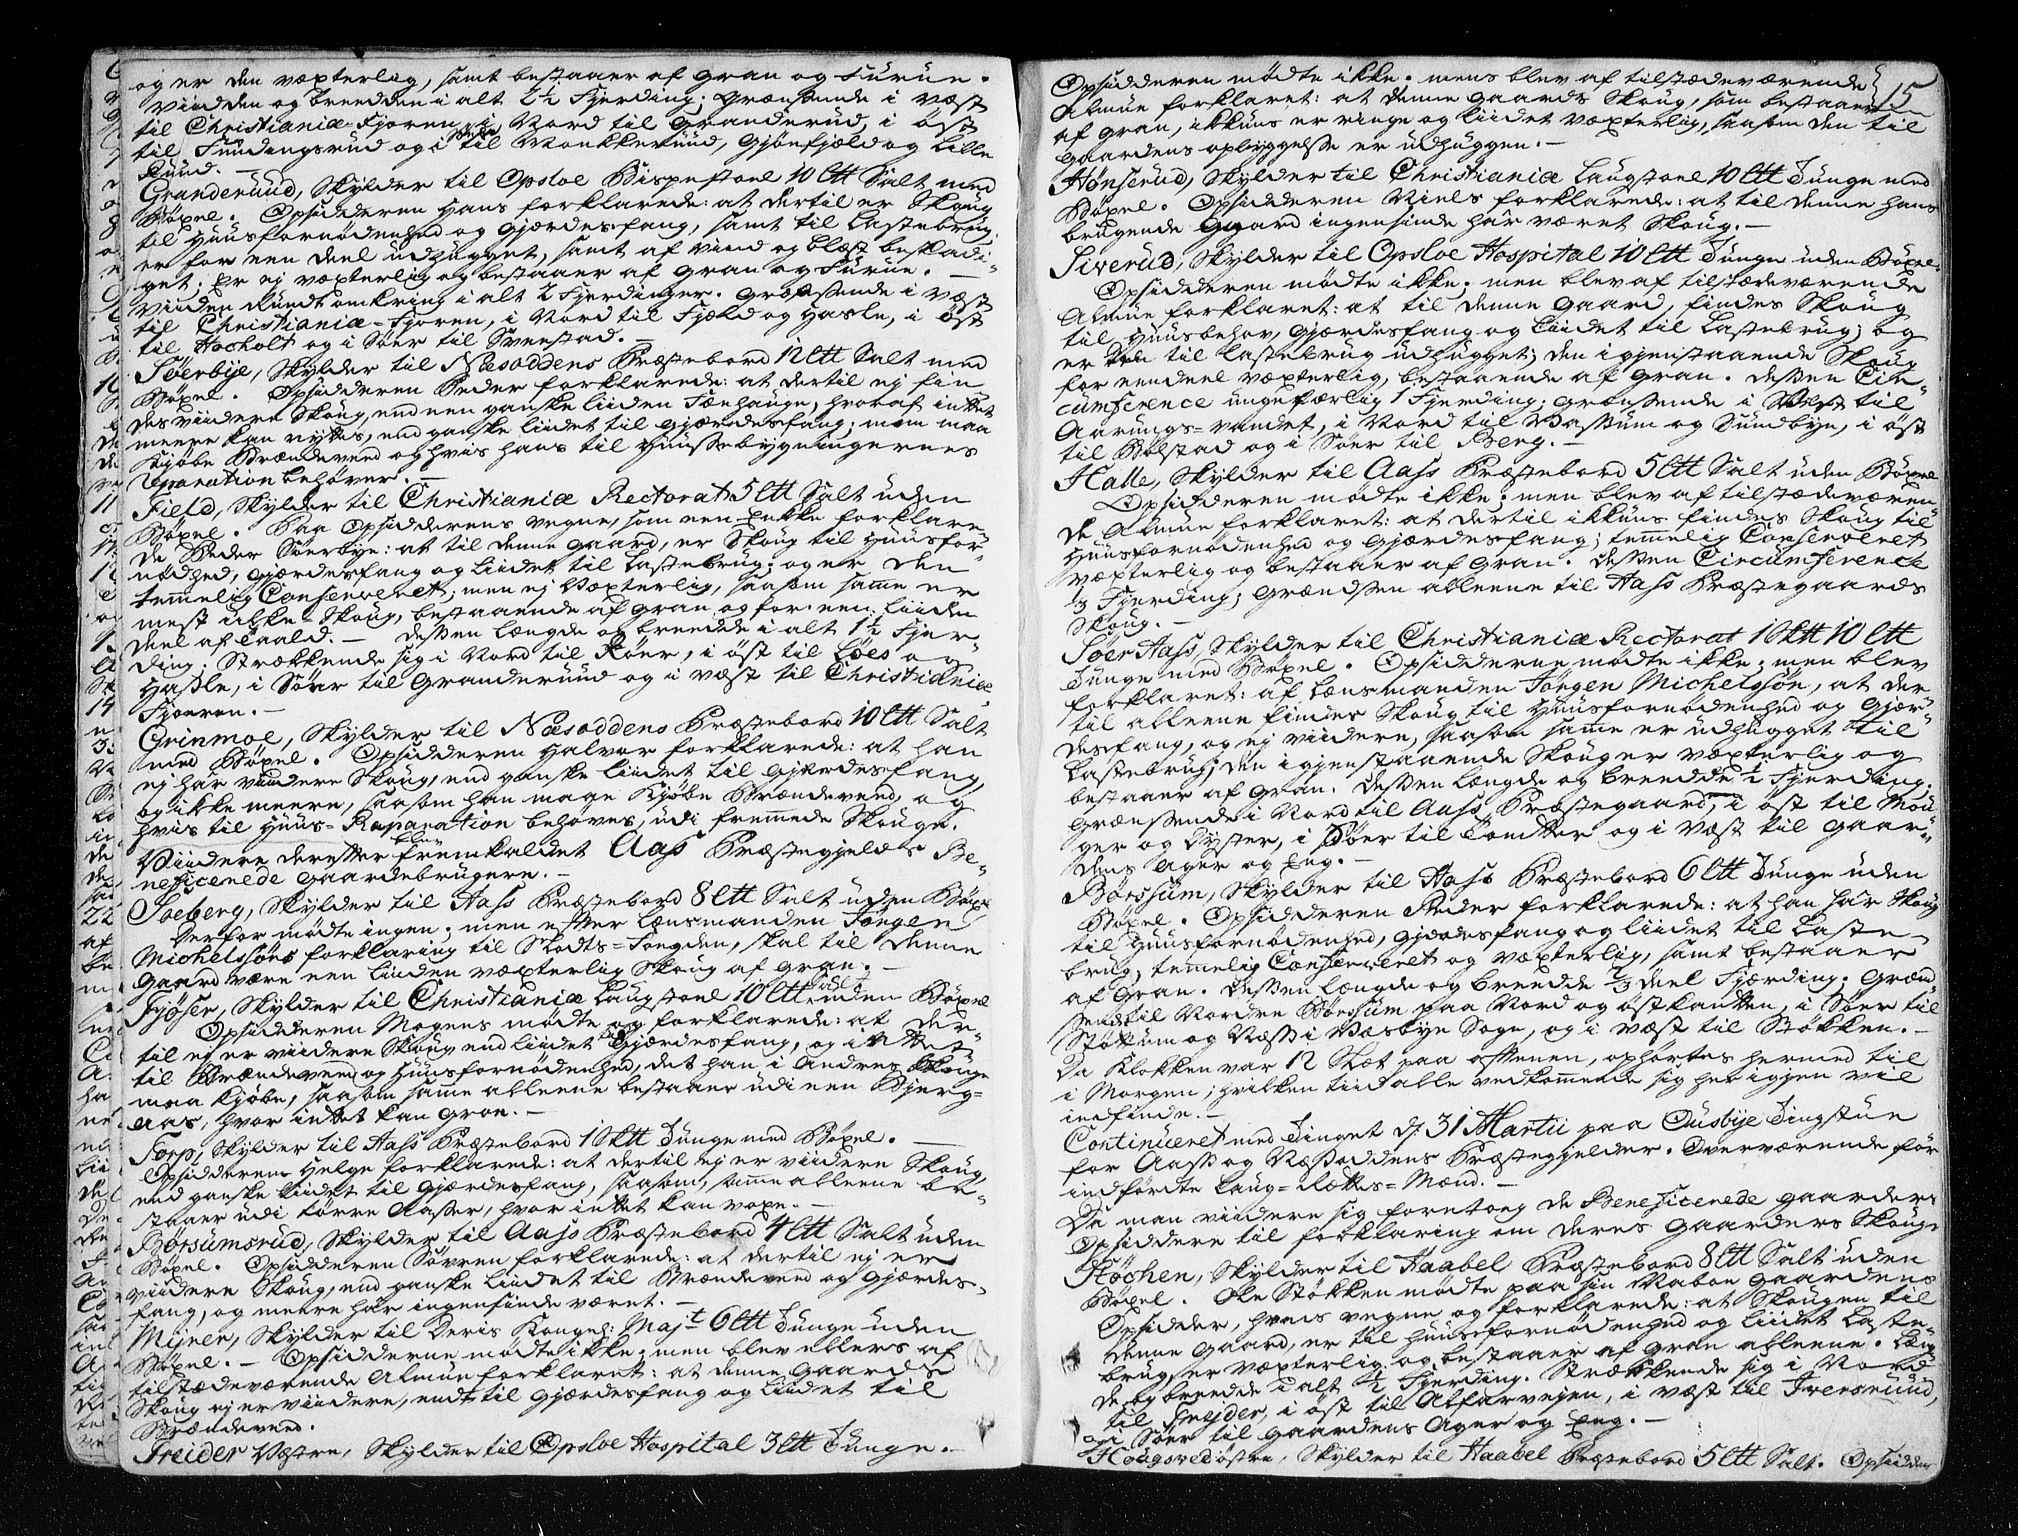 og er den væxterlig, samt bestaaer af Gran og Furue.
Viidden og breedden i alt 2½ Fjerding; Grænsende i Væst
til Christianiæ-Fjoren, i Nord til Granderud, i Øst
til Fundingsrud og i Søer til Monkkeruud, Gjønfjæld og Lille
Ruud. —
Granderuud, Skylder til Opsloe Bispestoel 10 Ltt Salt med
Bøxel. Opsidderen Hans forklarede: at dertil er Skoug
til Huusfornødenhed og Gjærdesfang, samt til Lastebrug,
er for een deel udhugget, samt af Viind og blæst beskadi-
get. Er ej væxterlig og bestaaer af Gran og Furue. —
Viiden Rundt omkring i alt 2 Fjerdinger. Græssende i Væst
til Christianiæ-Fjoren, i Nord til Fjæld og Hasle, i Øst
til Hocholt og i Søer til Svenstad. —
Søerbye, Skylder til Næsoddens Præstebord 12 Ltt Salt med
Bøxel. Opsidderen Peder forklarede: at dertil ej fin-
des viidere Skoug, end een ganske liiden Fæehauge, hvoraf intet
meere kan nyttes, end ganske liidet til Gjærdesfang; men maa
Kjøbe Brændeveed og hvis hans til Huusebygningernes
Reparation behøver. —
Field, Skylder til Christianiæ Rectorat 5 Ltt Salt uden
Bøxel. Paa Opsidderens vegne, som een Enkke forklare-
de Peder Søerbye: at til denne Gaard, er Skoug til Huusfor-
nødhed, Gjærdesfang og liidet til Lastebrug; og er den
temmelig Conserveret; men ej Væxterlig, saasom samme er
mest ikke-Skoug, bestaaende af Gran og for een liiden
deel af Laald. — Dessen Længde og breedde i alt 1½ Fjer-
ding. Strækkende sig i Nord til Røer, i Øst til Løes og
Hasle, i Søer til Granderuud og i væst til Christianiæ
Fjoeren. —
Grinmoe, Skylder til Næsoddens Præstebord 10 Ltt Salt
med Bøxel. Opsidderen Halvor forklarede: at han
ej har viidere Skoug, end ganske liidet til Gjærdesfang,
og ikke meere, saasom han mage Kjøbe Brændeveed, og
hvis til Huus-Reparation behøves, udi fremmede Skouge.
Viidere derefter blev fremkaldet Aas Præstegjelds Be-
neficerede Gaardebrugere. —
Soeberg, Skylder til Aass Præstebord 8 Ltt Salt uden Bøxel
Derfor mødte ingen; men efter Lænsmanden Jørgen
Michelssøns forklaring til Stedts-Fougden, skal til denne
Gaard være een liiden væxterlig Skoug af Gran. —
Fjøser, Skylder til Christianiæ Laugstoel 10 Ltt Salt uden Bøxel
Opsidderen Mogens mødte og forklarede: at der-
til ej er viidere Skoug end liidet til Gjærdesfang, og intet
til Brændeveed og Huusfornødenhed, det han i Andres Skouge
maa Kjøbe, saasom samme alleene bestaaer udi een Bjerg-
aas, hvor intet kan Groe. —
Torp, Skylder til Aass Præstebord 1 Sktt Tunge med Bøxel. —
Opsidderen Helge forklarede: at dertil ej er viidere Skoug,
end ganske liidet til Gjærdesfang, saasom, samme alleene be-
staaer udi tørre Aasser, hvor intet kan voxe. —
Børsumsrud, Skylder til Aass Præstebord 4 Ltt Salt uden
Bøxel. Opsidderen Søvren forklarede: at dertil ej er
viidere Skoug, end ganske liidet til Brændeveed og Gjærdes-
fang, og meere har ingensinde været. —
Myrer, Skylder til Deris Kongel: Majt 6 Ltt Tunge uden
Bøxel. — Opsidderne mødte ikke; men blev ellers af
tilstædeværende Almue forklaret: at denne Gaards
Skoug ej er viidere, endt til Gjærdesfang og liidet til
Brændeveed.
Freider Væstre, Skylder til Opsloe Hospital 3 Ltt Tunge. —
15
Opsidderen mødte ikke. mens blev af tilstædeværende
Almue forklaret: at denne Gaards Skoug, som bestaaer
af Gran, ikkuns er ringe og liidet Væxterlig, saasom den til
Gaardens opbyggelse er udhuggen. —
Hønserud, Skylder til Christianiæ Laugstoel 10 Ltt Tunge med
Bøxel. Opsidderen Niels forklarede: at til denne hans
brugende Gaard ingensinde har været Skoug. —
Siverud, Skylder til Opsloe Hospital 10 Ltt Tunge uden Bøxel.
Opsidderen mødte ikke. men blev af tilstædeværende
Almue forklaret: at til denne Gaard, findes Skoug
til Huusbehov, Gjærdesfang og liidet til Lastebrug; og
er til Lastebrug udhugget; den igjenstaaende Skoug
for eendeel væxterlig, bestaaende af Gran. Dessen Cir-
cumference ungefærlig 1 Fjerding; Grænssende i Væst til
Aarungs-vandet, i Nord til Vassum og Sundbye, i Øst
til Bølstad og i Søer til Berg. —
Halle, Skylder til Aass Præstebord 5 Ltt Salt uden Bøxel
Opsidderen mødte ikke; men blev af tilstædeværen-
de Almue forklaret: at dertil ikkuns findes Skoug til
Huusfornødenhed og Gjærdesfang; temmelig Conserveret
væxterlig og bestaaer af Gran. Dessen Circumference
⅓ Fjerding; Grændsen alleene til Aass Præstegaards
Skoug. —
Søer Aass, Skylder til Christianiæ Rectorat 1 Sktt 10 Ltt
Tunge med Bøxel. Opsidderne mødte ikke; men blev
forklaret: af Lænsmanden Jørgen Michelssøn, at der
til alleene findes Skoug til Huusfornødenhed og Gjær-
desfang, og ej viidere, saasom samme er udhugget til
Lastebrug; den igjenstaaende Skoug er væxterlig og
bestaaer af Gran. Dessen Længde og breedde ½ Fjerding;
Grænssende i Nord til Aass Præstegaard, i Øst til Mou-
ger og Dyster, i Søer til Tomtter og i Væst til Gaar-
dens Ager og Eng. —
Børssum, Skylder til Aass Præstebord 6 Ltt Tunge uden
Bøxel. Opsidderen Peder forklarede: at han har Skoug
til Huusfornødenhed, Gjærdesfang og liidet til Laste-
brug, temmelig Conserveret og væxterlig, samt bestaaer
af Gran. Dessen Længde og breedde ⅔ deel Fjærding; Grænd-
sende til Nordre Børssum paa Nord og Østkantten, i Søer til
Støkkum og Næss i Væsbye Sogn, og i væst til Støkken. —
Da Klokken var 12 Slæt paa Aftenen, ophørtes hermed til
i Morgen; hvilken tiid alle vedkommende sig her igjen vil
indfinde. —
Continueret med Tinget d. 31 Martii paa Ousbye Tingstue
for Aass og Næssoddens Præstegjelder. Overværende før
indførdte Laug-Rættes-Mænd. —
Da man viidere sig foretoeg de Beneficerede Gaarders
Opsiddere til forklaring om deres Gaarders Skouge
Støchen, Skylder til Haabel Præstebord 8 Ltt Salt uden
Bøxel. Ole Støkken mødte paa sin Naboe Gaardens
Opsidder, hvis vegne og forklarede: at Skougen til
denne Gaard, er til Huusfornødenhed og liidet Laste-
brug; er væxterlig og bestaaer af Gran alleene. Læng-
de og breedde i alt ½ Fjerding. Strækkende sig i Nord
til Freyder, i Øst til Alfarvejen, i væst til Iversruud,
i Søer til Gaardens Ager og Eng. —
Hougsvedøstre, Skylder til Haabel Præstebord 5 Ltt Salt. Opsidder